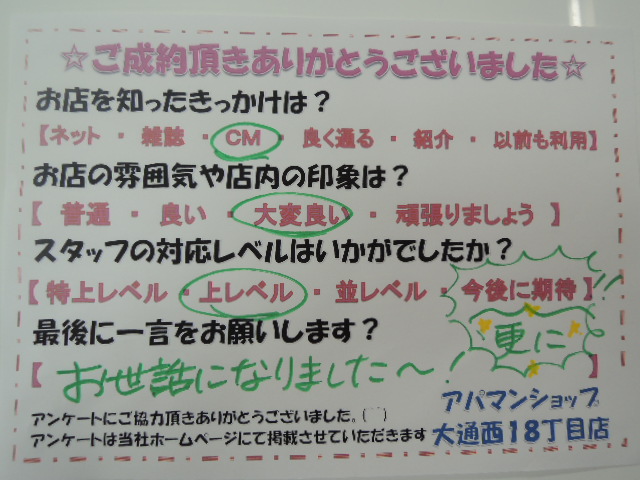 ☆ご成約頂きありがとうございました☆
お店を知ったきっかけは？
【ネット ・ 雑誌 ・ CM ・ 良く通る ・ 紹介 ・ 以前も利用】
お店の雰囲気や店内の印象は？
【 普通 ・ 良い ・ 大変良い ・ 頑張りましょう 】
スタッフの対応レベルはいかがでしたか？
【特上レベル ・ 上レベル ・ 並レベル ・ 今後に期待】!!
最後に一言をお願いします？
更に
【 お世話になりました～! 】
アパマンショップ
アンケートにご協力頂きありがとうございました。
アンケートは当社ホームページにて掲載させていただきます
大通西18丁目店